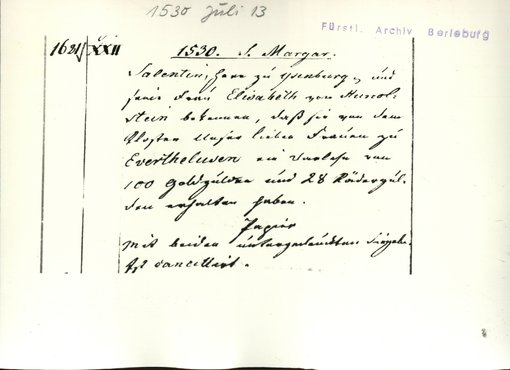 1530 Juli 13
Fürstl. Archiv Berleburg
1621 XXII
1530. S. Margar.
Salentin, Herr zu Ysenburg, und
seine Frau Elisabeth von Hunol-
stein bekennen, daß sie von dem
Kloster Unser lieben Frauen zu
Everthelusen ein Darlehn von
100 Goldgülden und 28 Rädergül-
den erhalten haben.
Papier
Mit beiden untergedruckten Siegeln.
Ist cancellirt.